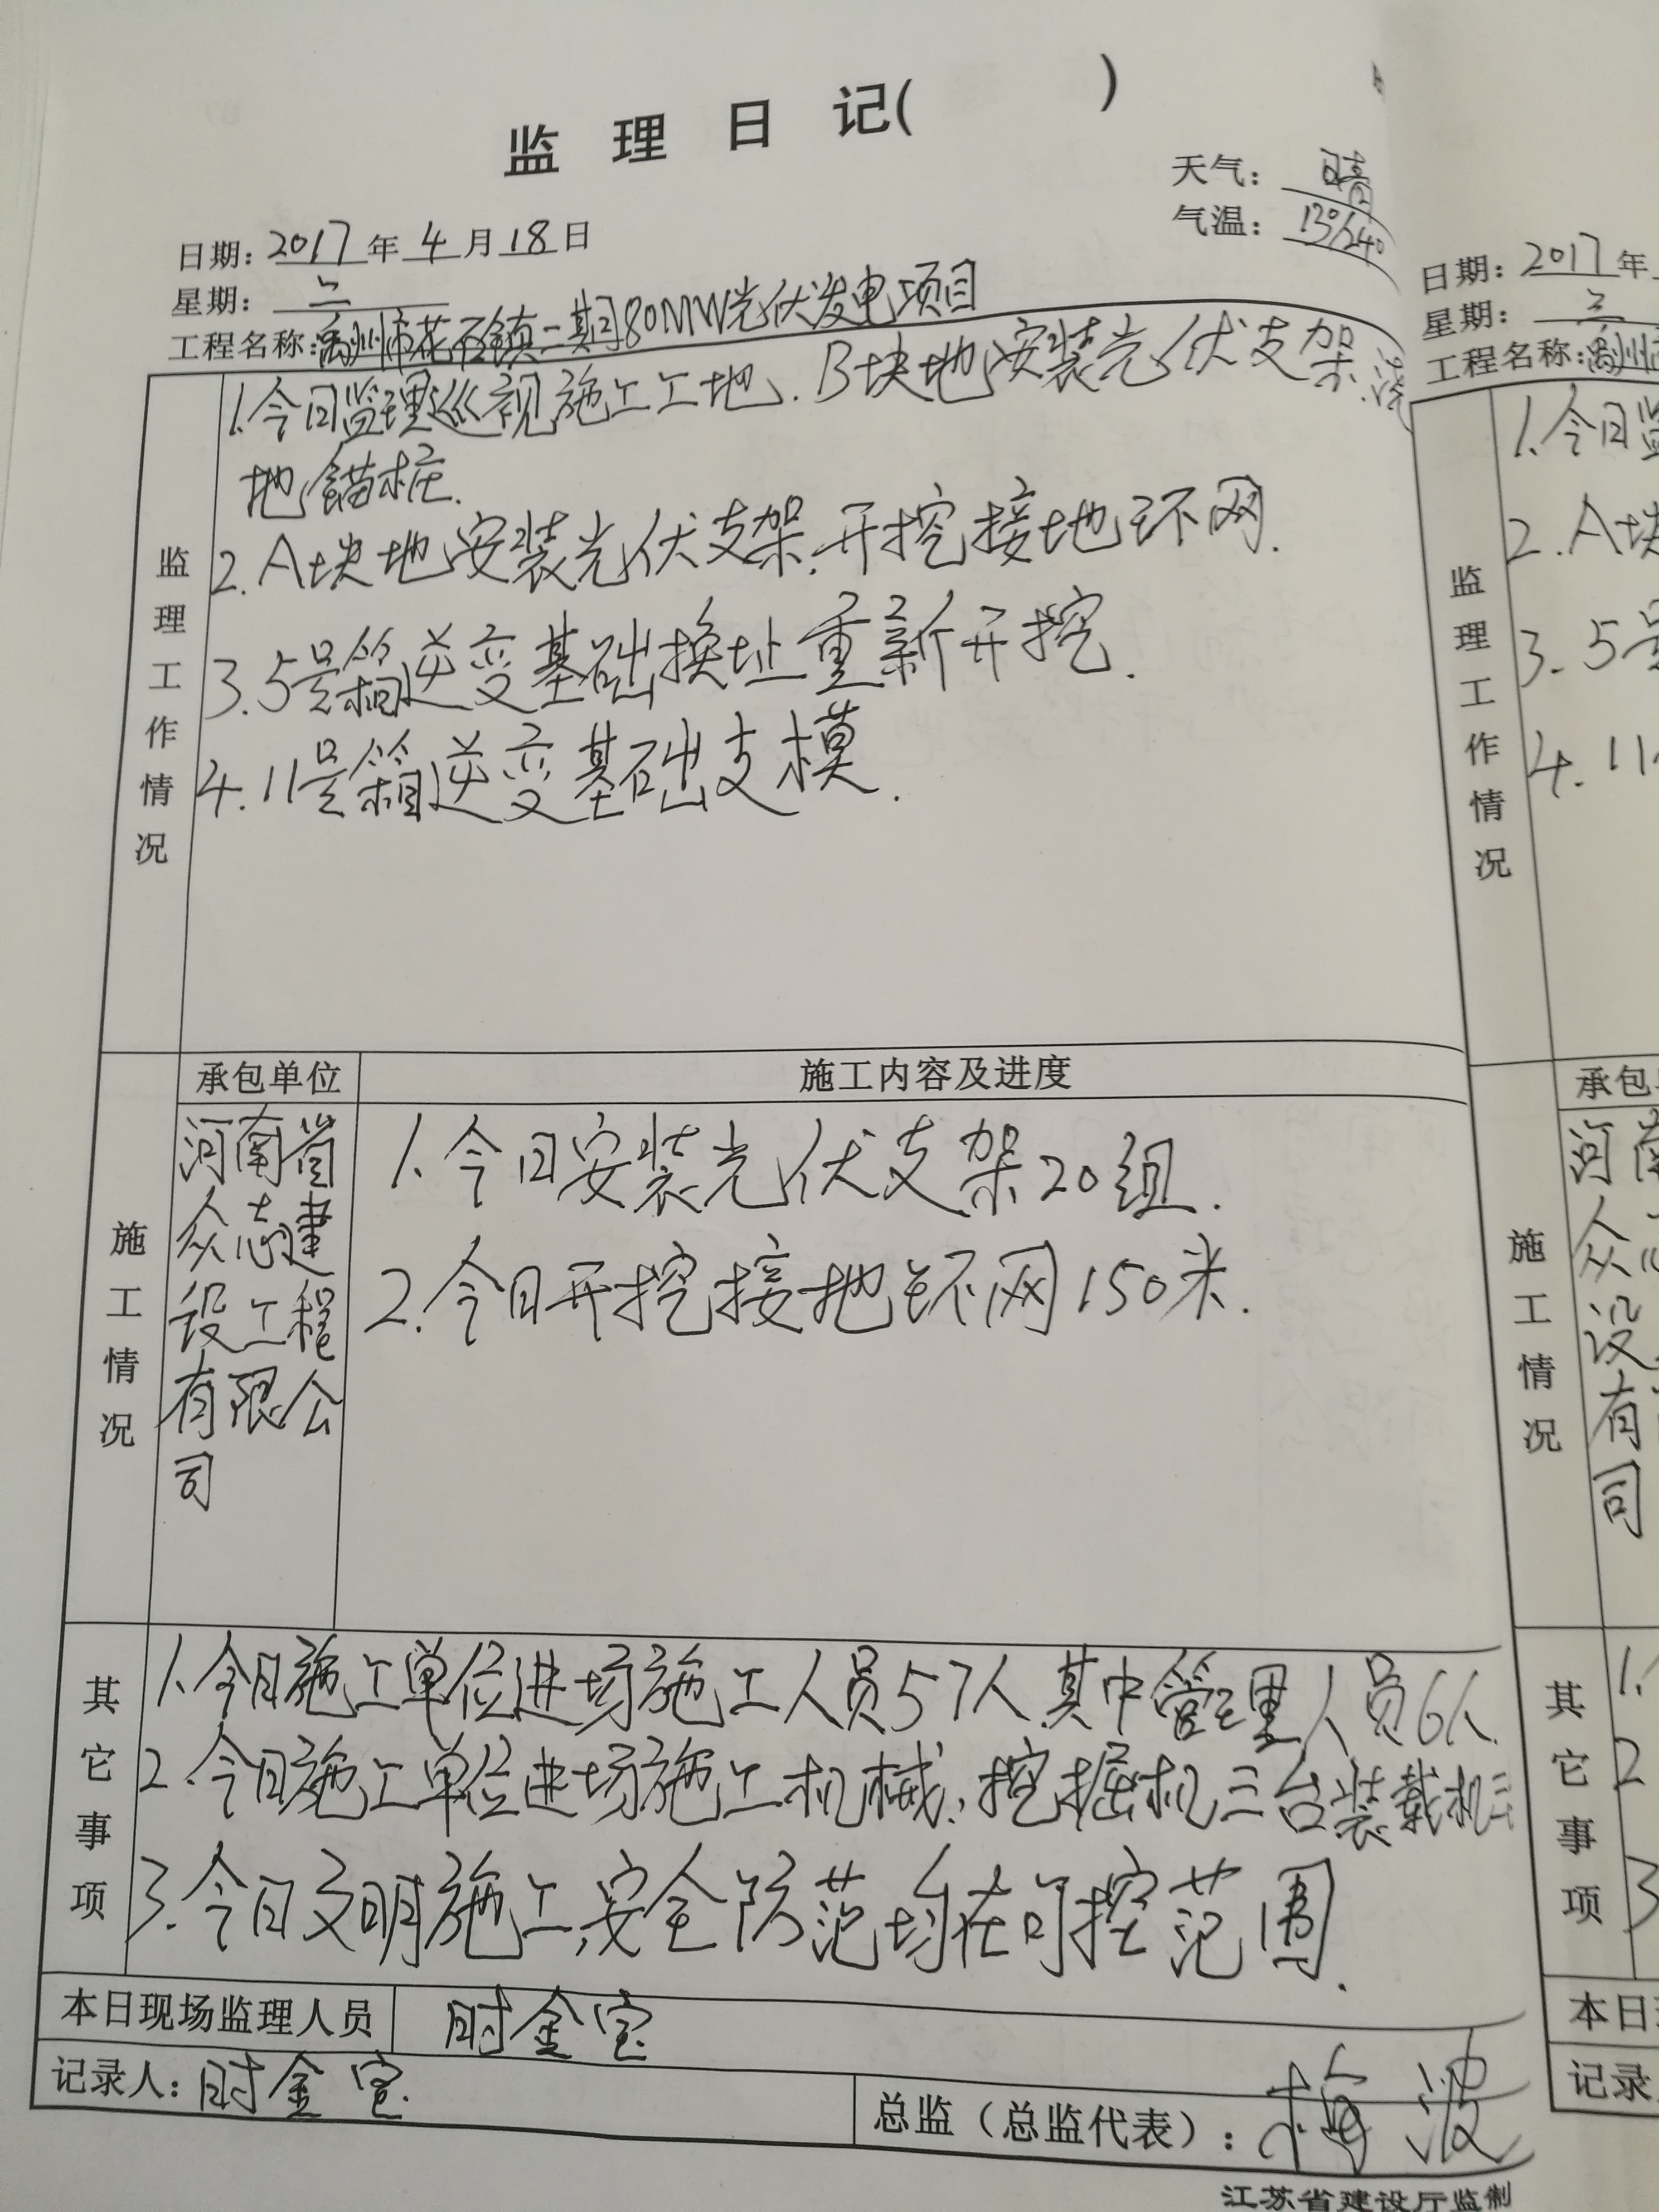 监理日记( )
天气：晴
气温：13°/24°
日期：2017年4月18日
星期：二
工程名称：禹州市花石镇二期80MW光伏发电项目
监理工作情况
1.今日监理巡视施工工地.B块地安装光伏支架.浇
地锚桩.
2.A块地安装光伏支架.开挖接地环网.
3.5号箱逆变基础换址重新开挖.
4.11号箱逆变基础支模.
施工情况
承包单位
施工内容及进度
河南省
众志建
设工程
有限公
司
1.今日安装光伏支架20组.
2.今日开挖接地环网150米.
其它事项
1.今日施工单位进场施工人员57人.其中管理人员6人.
2.今日施工单位进场施工机械:挖掘机三台装载机三
3.今日文明施工,安全防范均在可控范围.
本日现场监理人员
时金宝
记录人：时金宝
总监（总监代表）：梅波
江苏省建设厅监制
日期：2017年
星期：三
工程名称：禹州市
监理工作情况
1.今日监
2.A块
3.5号
4.11
施工情况
承包
河南
众
设
有
司
其它事项
1.
2
3
本日
记录